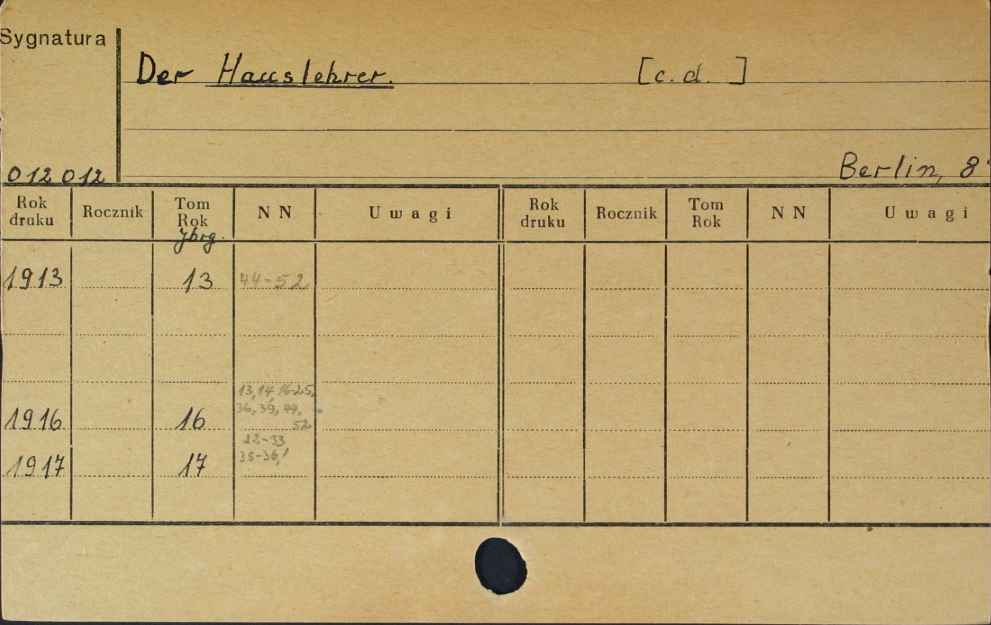 Sygnatura
Der Hauslehrer. [c.d. ]
012012 Berlin, 8°
Rok druku Rocznik Tom Rok NN Uwagi Rok druku Rocznik Tom Rok NN Uwagi
Jhrg.
1913 13 44-52
13,14,16-25,
36, 39, 49,
1916 16 52
22-33
1917 17 35-36,